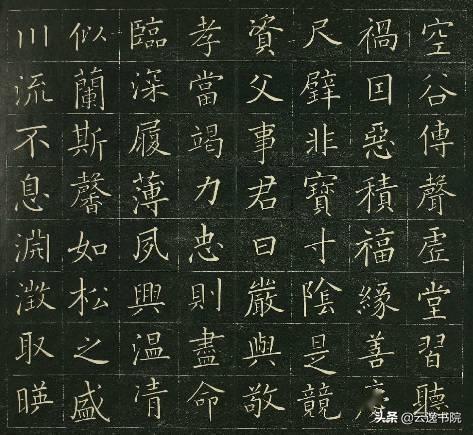 空谷傳聲虛堂習聽
禍因惡積福緣善慶
尺璧非寶寸陰是競
資父事君曰嚴與敬
孝當竭力忠則盡命
臨深履薄夙興温凊
似蘭斯馨如松之盛
川流不息淵澂取暎
头条@云逸书院